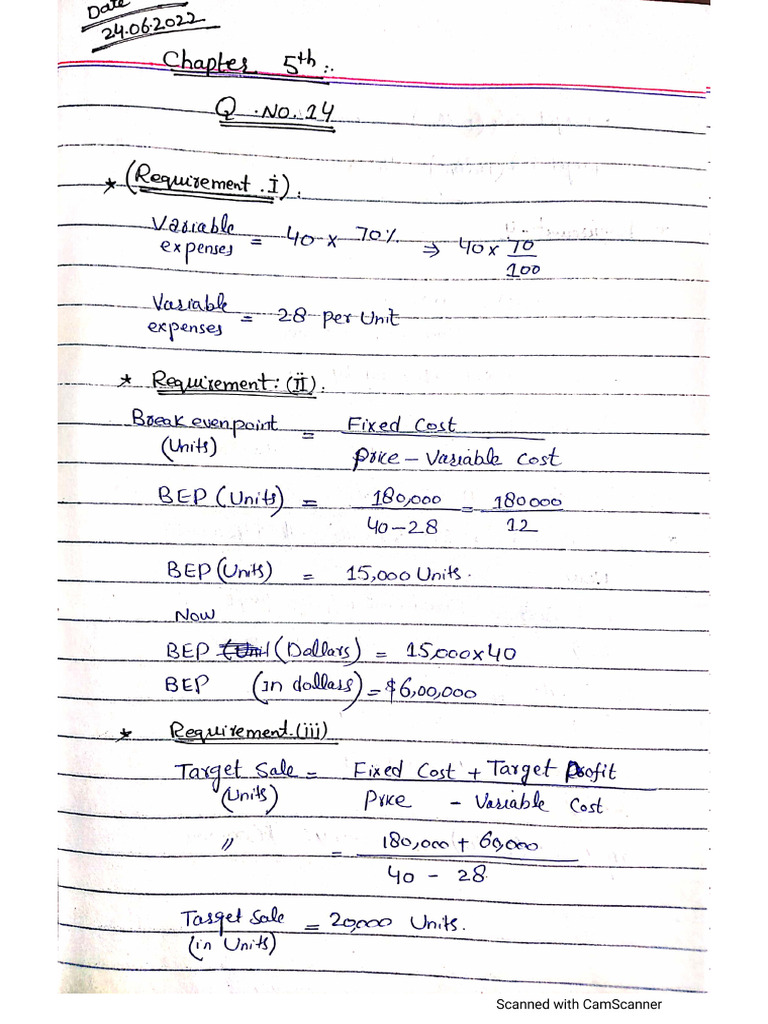 Date
24.06.2022
Chapter 5th :.
Q .No. 14
* (Requirement .I) .
Variable expenses = 40 x 70% ⇒ 40 x 70/100
Variable expenses = 28 per Unit
* Requirement: (II) .
Break even point (Units) = Fixed Cost / Price - Variable Cost
BEP (Units) = 180,000 / 40-28 = 180000 / 12
BEP (Units) = 15,000 Units.
Now
BEP (Dollars) = 15,000 x 40
BEP (in dollars) = $6,00,000
* Requirement.(iii)
Target Sale (Units) = Fixed Cost + Target Profit / Price - Variable Cost
" = 180,000 + 60,000 / 40 - 28
Target Sale (in Units) = 20,000 Units.
Scanned with CamScanner